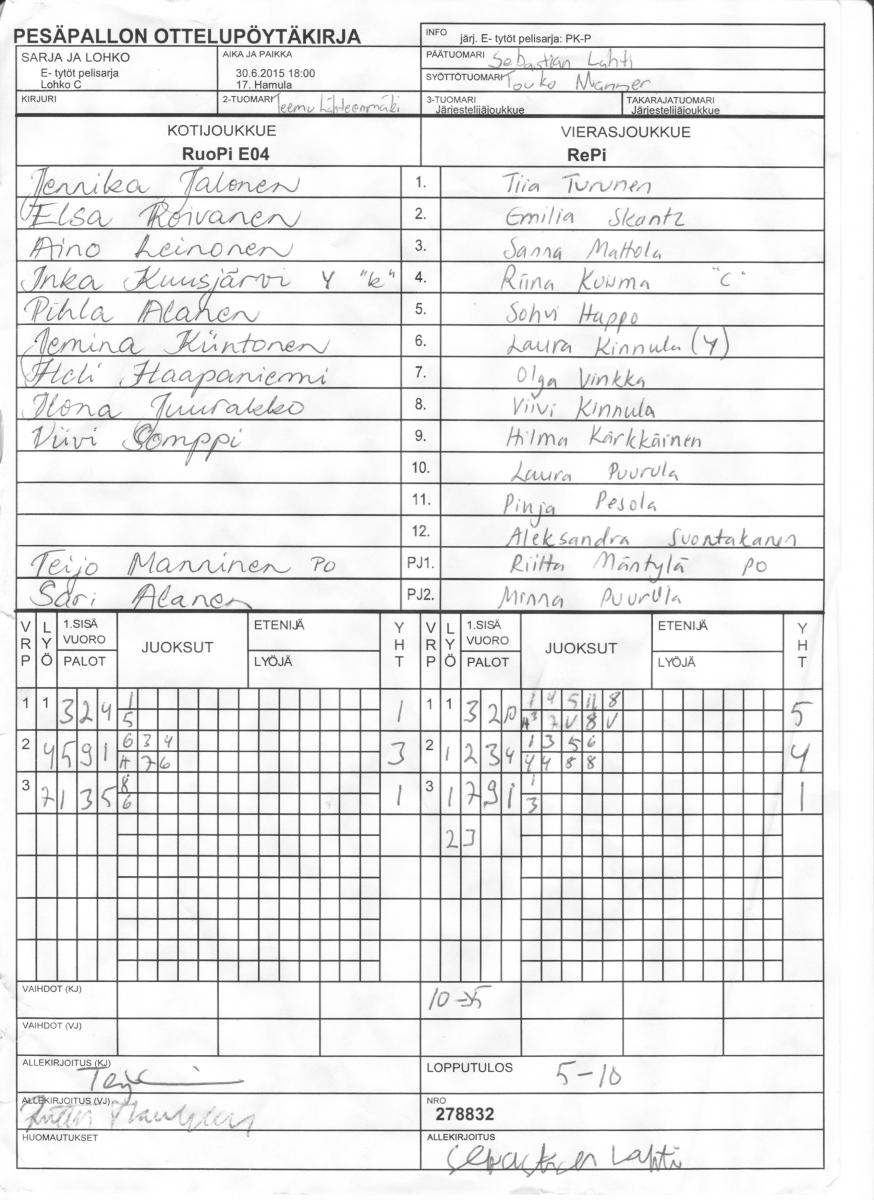 PESÄPALLON OTTELUPÖYTÄKIRJA
INFO järj. E- tytöt pelisarja: PK-P
SARJA JA LOHKO
E- tytöt pelisarja
Lohko C
AIKA JA PAIKKA
30.6.2015 18:00
17. Hamula
PÄÄTUOMARI Sebastian Lahti
SYÖTTÖTUOMARI Touko Manner
KIRJURI
2-TUOMARI Teemu Lähteenmäki
3-TUOMARI
Järjestelijäjoukkue
TAKARAJATUOMARI
Järjestelijäjoukkue
KOTIJOUKKUE
RuoPi E04
VIERASJOUKKUE
RePi
Jennika Jalonen 1. Tiia Turunen
Elsa Roivanen 2. Emilia Skantz
Aino Leinonen 3. Sanna Mattola
Inka Kuusjärvi Y "k" 4. Riina Kouma "C"
Pihla Alanen 5. Sohvi Happo
Jemina Kiintonen 6. Laura Kinnula (Y)
Heli Haapaniemi 7. Olga Vinkka
Ilona Juurakko 8. Viivi Kinnula
Viivi Somppi 9. Hilma Kärkkäinen
10. Laura Puurula
11. Pinja Pesola
12. Aleksandra Suontakanen
Teijo Manninen PO PJ1. Riitta Mäntylä PO
Sari Alanen PJ2. Minna Puurula
VRP LYÖ 1.SISÄ VUORO PALOT JUOKSUT ETENIJÄ LYÖJÄ YHT VRP LYÖ 1.SISÄ VUORO PALOT JUOKSUT ETENIJÄ LYÖJÄ YHT
1 1 3 2 4 1 1 1 1 3 2 10 1 4 5 11 8 5
5 3 7 V 8 V
2 4 5 9 1 6 3 4 3 2 1 2 3 4 1 3 5 6 4
H 7 6 4 4 8 8
3 7 1 3 5 8 1 3 1 7 9 1 1 1
6 3
23
VAIHDOT (KJ) 10→5
VAIHDOT (VJ)
ALLEKIRJOITUS (KJ)
LOPPUTULOS 5-10
ALLEKIRJOITUS (VJ)
NRO
278832
HUOMAUTUKSET
ALLEKIRJOITUS
Sebastian Lahti